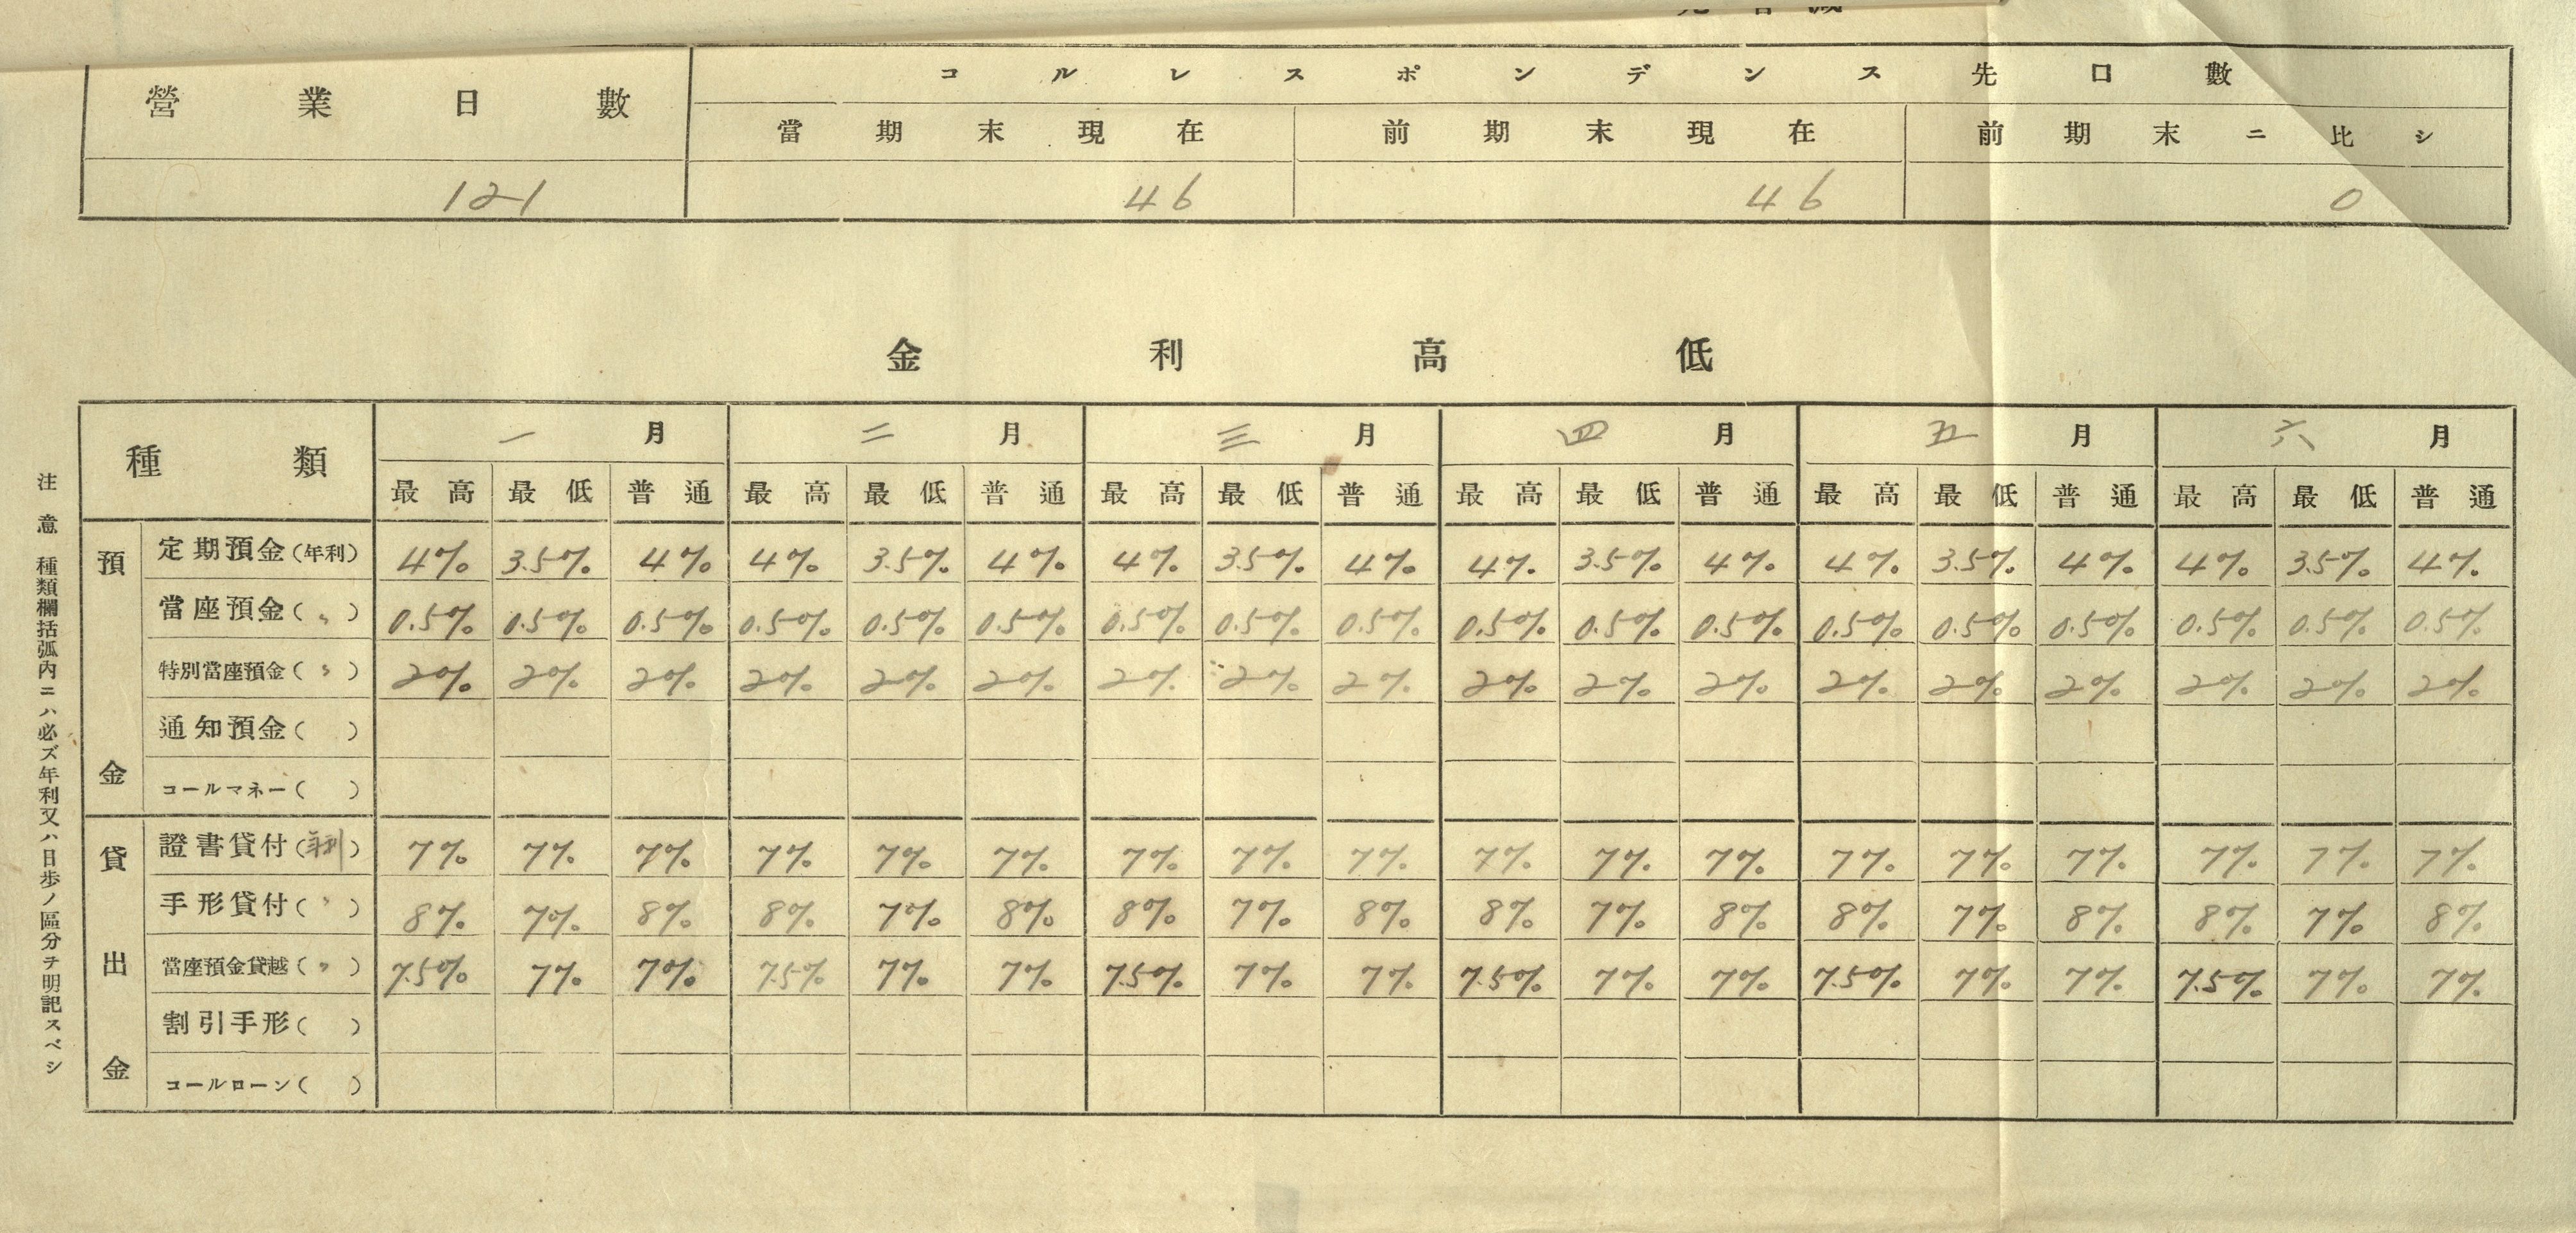 營業日數 コルレスポンデンス先口數
當期末現在 前期末現在 前期末ニ比シ
121 46 46 0
金利高低
種類 一月 二月 三月 四月 五月 六月
最高 最低 普通 最高 最低 普通 最高 最低 普通 最高 最低 普通 最高 最低 普通 最高 最低 普通
預金
定期預金(年利) 4% 3.5% 4% 4% 3.5% 4% 4% 3.5% 4% 4% 3.5% 4% 4% 3.5% 4% 4% 3.5% 4%
當座預金(〃) 0.5% 0.5% 0.5% 0.5% 0.5% 0.5% 0.5% 0.5% 0.5% 0.5% 0.5% 0.5% 0.5% 0.5% 0.5% 0.5% 0.5% 0.5%
特別當座預金(〃) 2% 2% 2% 2% 2% 2% 2% 2% 2% 2% 2% 2% 2% 2% 2% 2% 2% 2%
通知預金( )
コールマネー( )
貸出金
證書貸付(年利) 7% 7% 7% 7% 7% 7% 7% 7% 7% 7% 7% 7% 7% 7% 7% 7% 7% 7%
手形貸付(〃) 8% 7% 8% 8% 7% 8% 8% 7% 8% 8% 7% 8% 8% 7% 8% 8% 7% 8%
當座預金貸越(〃) 7.5% 7% 7% 7.5% 7% 7% 7.5% 7% 7% 7.5% 7% 7% 7.5% 7% 7% 7.5% 7% 7%
割引手形( )
コールローン( )
注意 種類欄括弧內ニハ必ズ年利又ハ日歩ノ區分ヲ明記スベシ